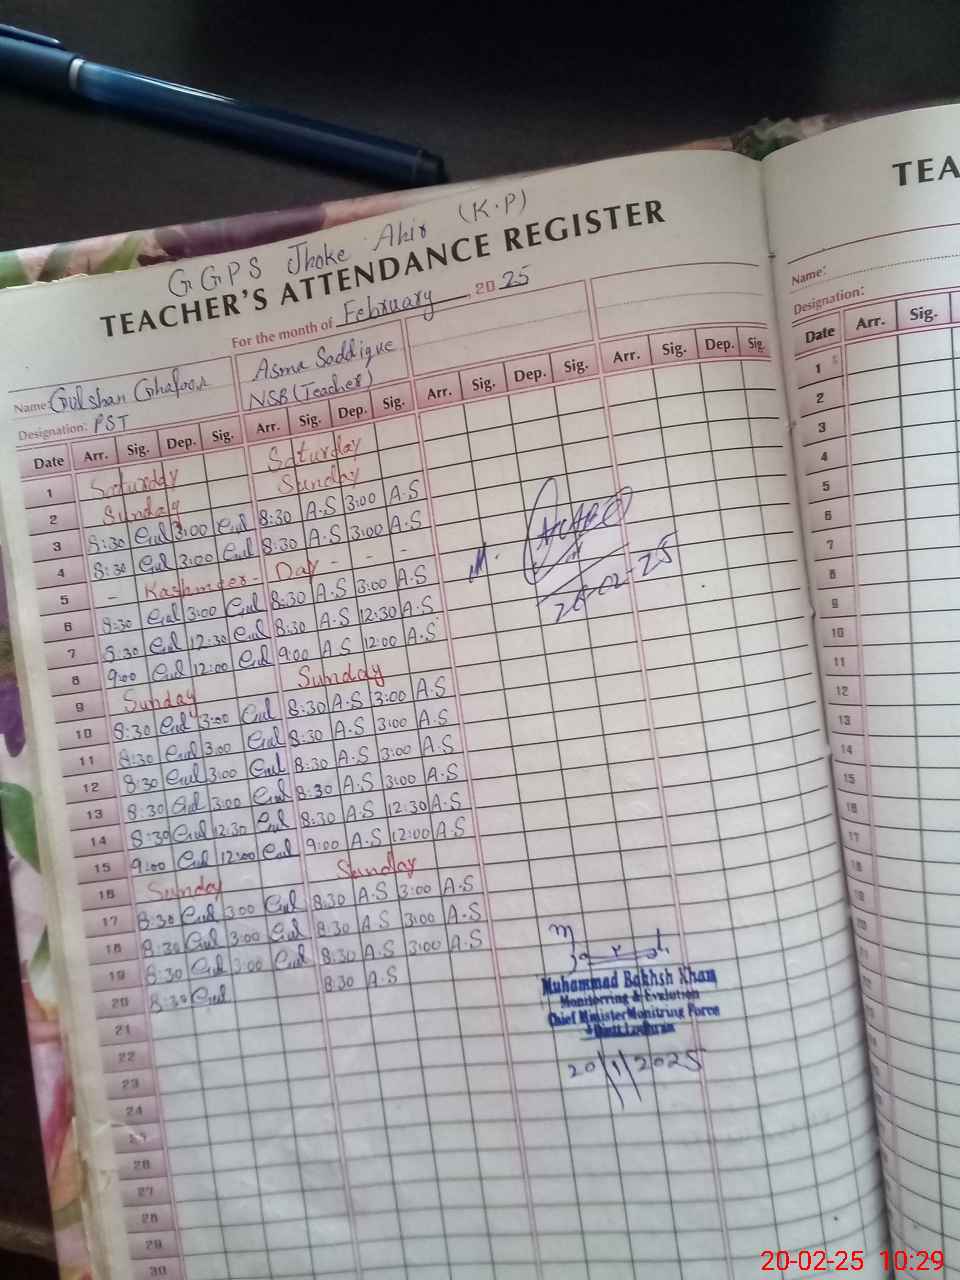 GGPS Jhoke Ahir (K.P)
TEACHER'S ATTENDANCE REGISTER
For the month of February, 2025
Name: Gulshan Ghafoor Asma Saddique
Designation: PST NSB (Teacher)
Date Arr. Sig. Dep. Sig. Arr. Sig. Dep. Sig. Arr. Sig. Dep. Sig. Arr. Sig. Dep. Sig.
1 Saturday Saturday
2 Sunday Sunday
3 8:30 Gul 3:00 Gul 8:30 A.S 3:00 A.S
4 8:30 Gul 3:00 Gul 8:30 A.S 3:00 A.S
5 - Kashmeer - Day - - -
6 8:30 Gul 3:00 Gul 8:30 A.S 3:00 A.S
7 8:30 Gul 12:30 Gul 8:30 A.S 12:30 A.S
8 9:00 Gul 12:00 Gul 9:00 A.S 12:00 A.S
9 Sunday Sunday
10 8:30 Gul 3:00 Gul 8:30 A.S 3:00 A.S
11 8:30 Gul 3:00 Gul 8:30 A.S 3:00 A.S
12 8:30 Gul 3:00 Gul 8:30 A.S 3:00 A.S
13 8:30 Gul 3:00 Gul 8:30 A.S 3:00 A.S
14 8:30 Gul 12:30 Gul 8:30 A.S 12:30 A.S
15 9:00 Gul 12:00 Gul 9:00 A.S 12:00 A.S
16 Sunday Sunday
17 8:30 Gul 3:00 Gul 8:30 A.S 3:00 A.S
18 8:30 Gul 3:00 Gul 8:30 A.S 3:00 A.S
19 8:30 Gul 3:00 Gul 8:30 A.S 3:00 A.S
20 8:30 Gul 8:30 A.S
21
22
23
24
25
26
27
28
29
30
Muhammad Bakhsh Khan
Monitorring & Evalution
Chief Minister Monitring Force
20/1/2025
TEA
Name:
Designation:
Date Arr. Sig.
1
2
3
4
5
6
7
8
9
10
11
12
13
14
15
16
17
18
19
20
20-02-25 10:29